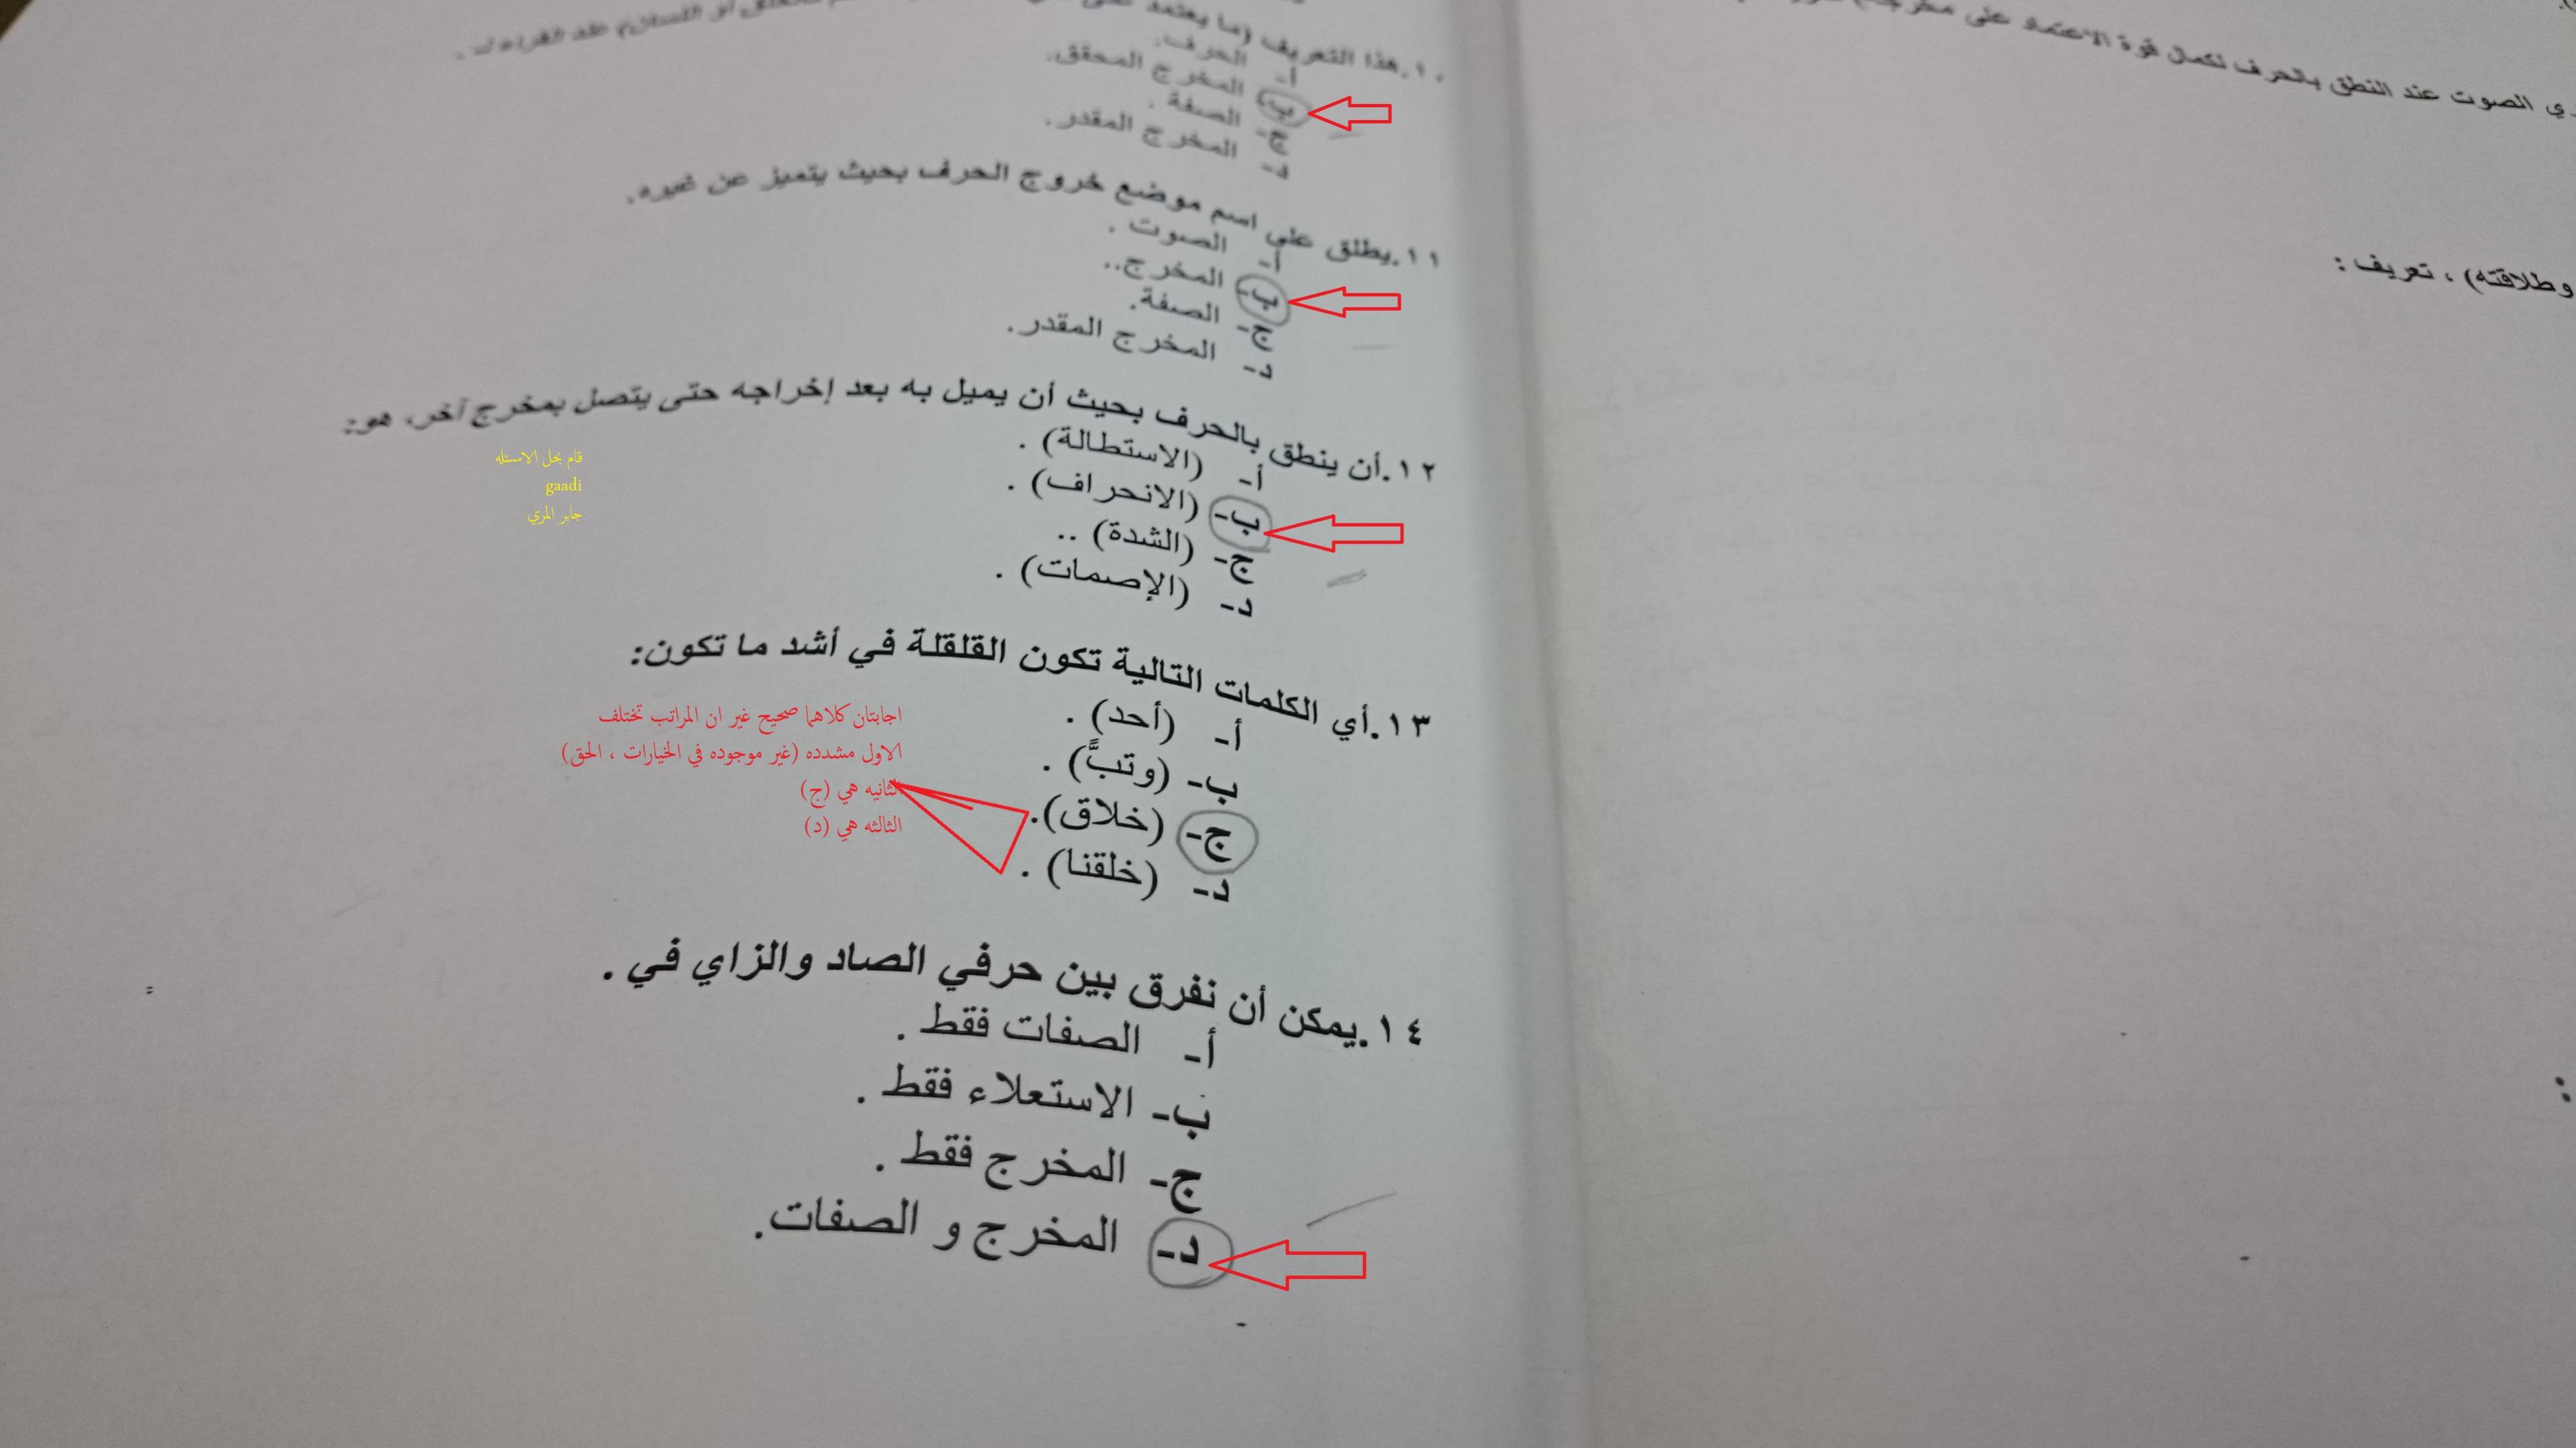 ١٠.هذا التعريف (ما يعتمد على
أو اللسان) عند القراءة .
أ- الحرف.
ب- المخرج المحقق.
ج- الصفة .
د- المخرج المقدر.
١١.يطلق على اسم موضع خروج الحرف بحيث يتميز عن غيره.
أ- الصوت .
ب- المخرج..
ج- الصفة.
د- المخرج المقدر.
١٢.أن ينطق بالحرف بحيث أن يميل به بعد إخراجه حتى يتصل بمخرج آخر، هو:
أ- (الاستطالة) .
ب- (الانحراف) .
ج- (الشدة) ..
د- (الإصمات) .
قام بحل الاسئله
gaadi
جابر المري
١٣.أي الكلمات التالية تكون القلقلة في أشد ما تكون:
أ- (أحد) .
ب- (وتبَّ) .
ج- (خلاق).
د- (خلقنا) .
اجابتان كلاهما صحيح غير ان المراتب تختلف
الاول مشدده (غير موجوده في الخيارات ، الحق)
الثانيه هي (ج)
الثالثه هي (د)
١٤.يمكن أن نفرق بين حرفي الصاد والزاي في .
أ- الصفات فقط .
ب- الاستعلاء فقط .
ج- المخرج فقط .
د- المخرج و الصفات.
ي الصوت عند النطق بالحرف لكمال قوة الاعتماد على
وطلاقته) ، تعريف :
: